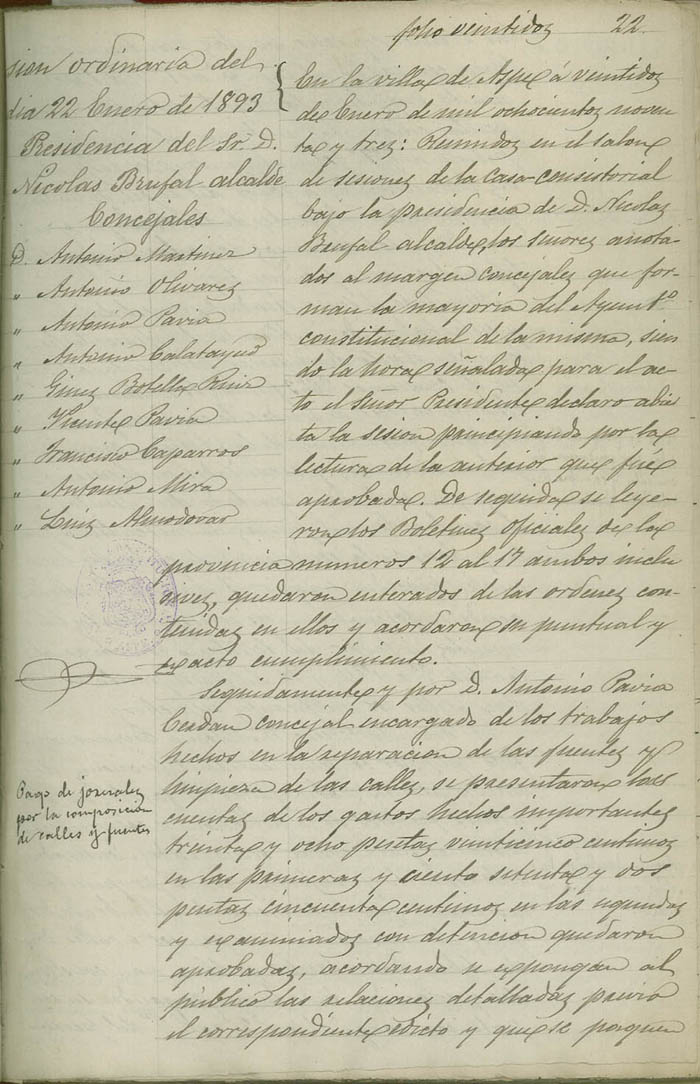 folio veintidoz 22.
sion ordinaria del
dia 22 Enero de 1893
Presidencia del Sr. D.
Nicolas Brufal alcalde
Concejales
D. Antonio Martinez
" Antonio Olivarez
" Antonio Pavia
" Antonio Calatayud
" Ginez Botella Ruiz
" Vicente Pavia
" Francisco Caparros
" Antonio Mira
" Luiz Almodovar
En la villa de Aspe á veintidoz
de Enero de mil ochocientoz noven
ta y trez: Reunidoz en el salon
de sesionez de la Casa-consistorial
bajo la presidencia de D. Nicolaz
Brufal alcalde, los señorez anota-
dos al margen concejalez que for-
man la mayoria del Ayunto.
constitucional de la misma, sien
do la hora señalada para el ac-
to el señor Presidente declaro abier
ta la sesion principiando por la
lectura de la anterior que fué
aprobada. De seguida se leye-
ron los Boletinez Oficialez de la
provincia numeros 12 al 17 ambos inclu
sivez, quedaron enterados de las ordenez con-
tenidaz en ellos y acordaron su puntual y
exacto cumplimiento.
Seguidamente y por D. Antonio Pavia
Cerdan concejal encargado de los trabajos
hechos en la reparacion de las fuentez y
limpieza de las callez, se presentaron las
cuentaz de los gastos hechos importantez
treinta y ocho pesetaz veinticinco centimoz
en las primeraz y ciento setenta y dos
pesetaz cincuenta centimoz en las segundaz
y examinadoz con detencion quedaron
aprobadaz, acordando se expongan al
público las relacionez detalladaz previo
el correspondiente edicto y que se paguen
Pago de jornalez
por la composicion
de calles y fuentes